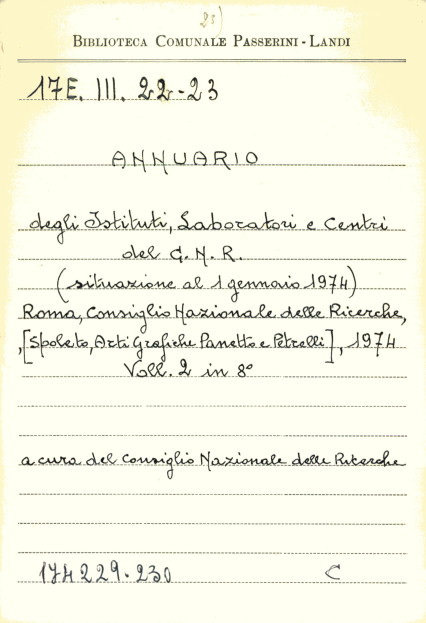 23)
BIBLIOTECA COMUNALE PASSERINI - LANDI
17E. III. 22-23
ANNUARIO
degli Istituti, Laboratori e Centri
del C.N.R.
(situazione al 1 gennaio 1974)
Roma, Consiglio Nazionale delle Ricerche,
,[Spoleto, Arti Grafiche Panetto e Petrelli], 1974
Voll. 2 in 8°
a cura del Consiglio Nazionale delle Ricerche
174229-230 C